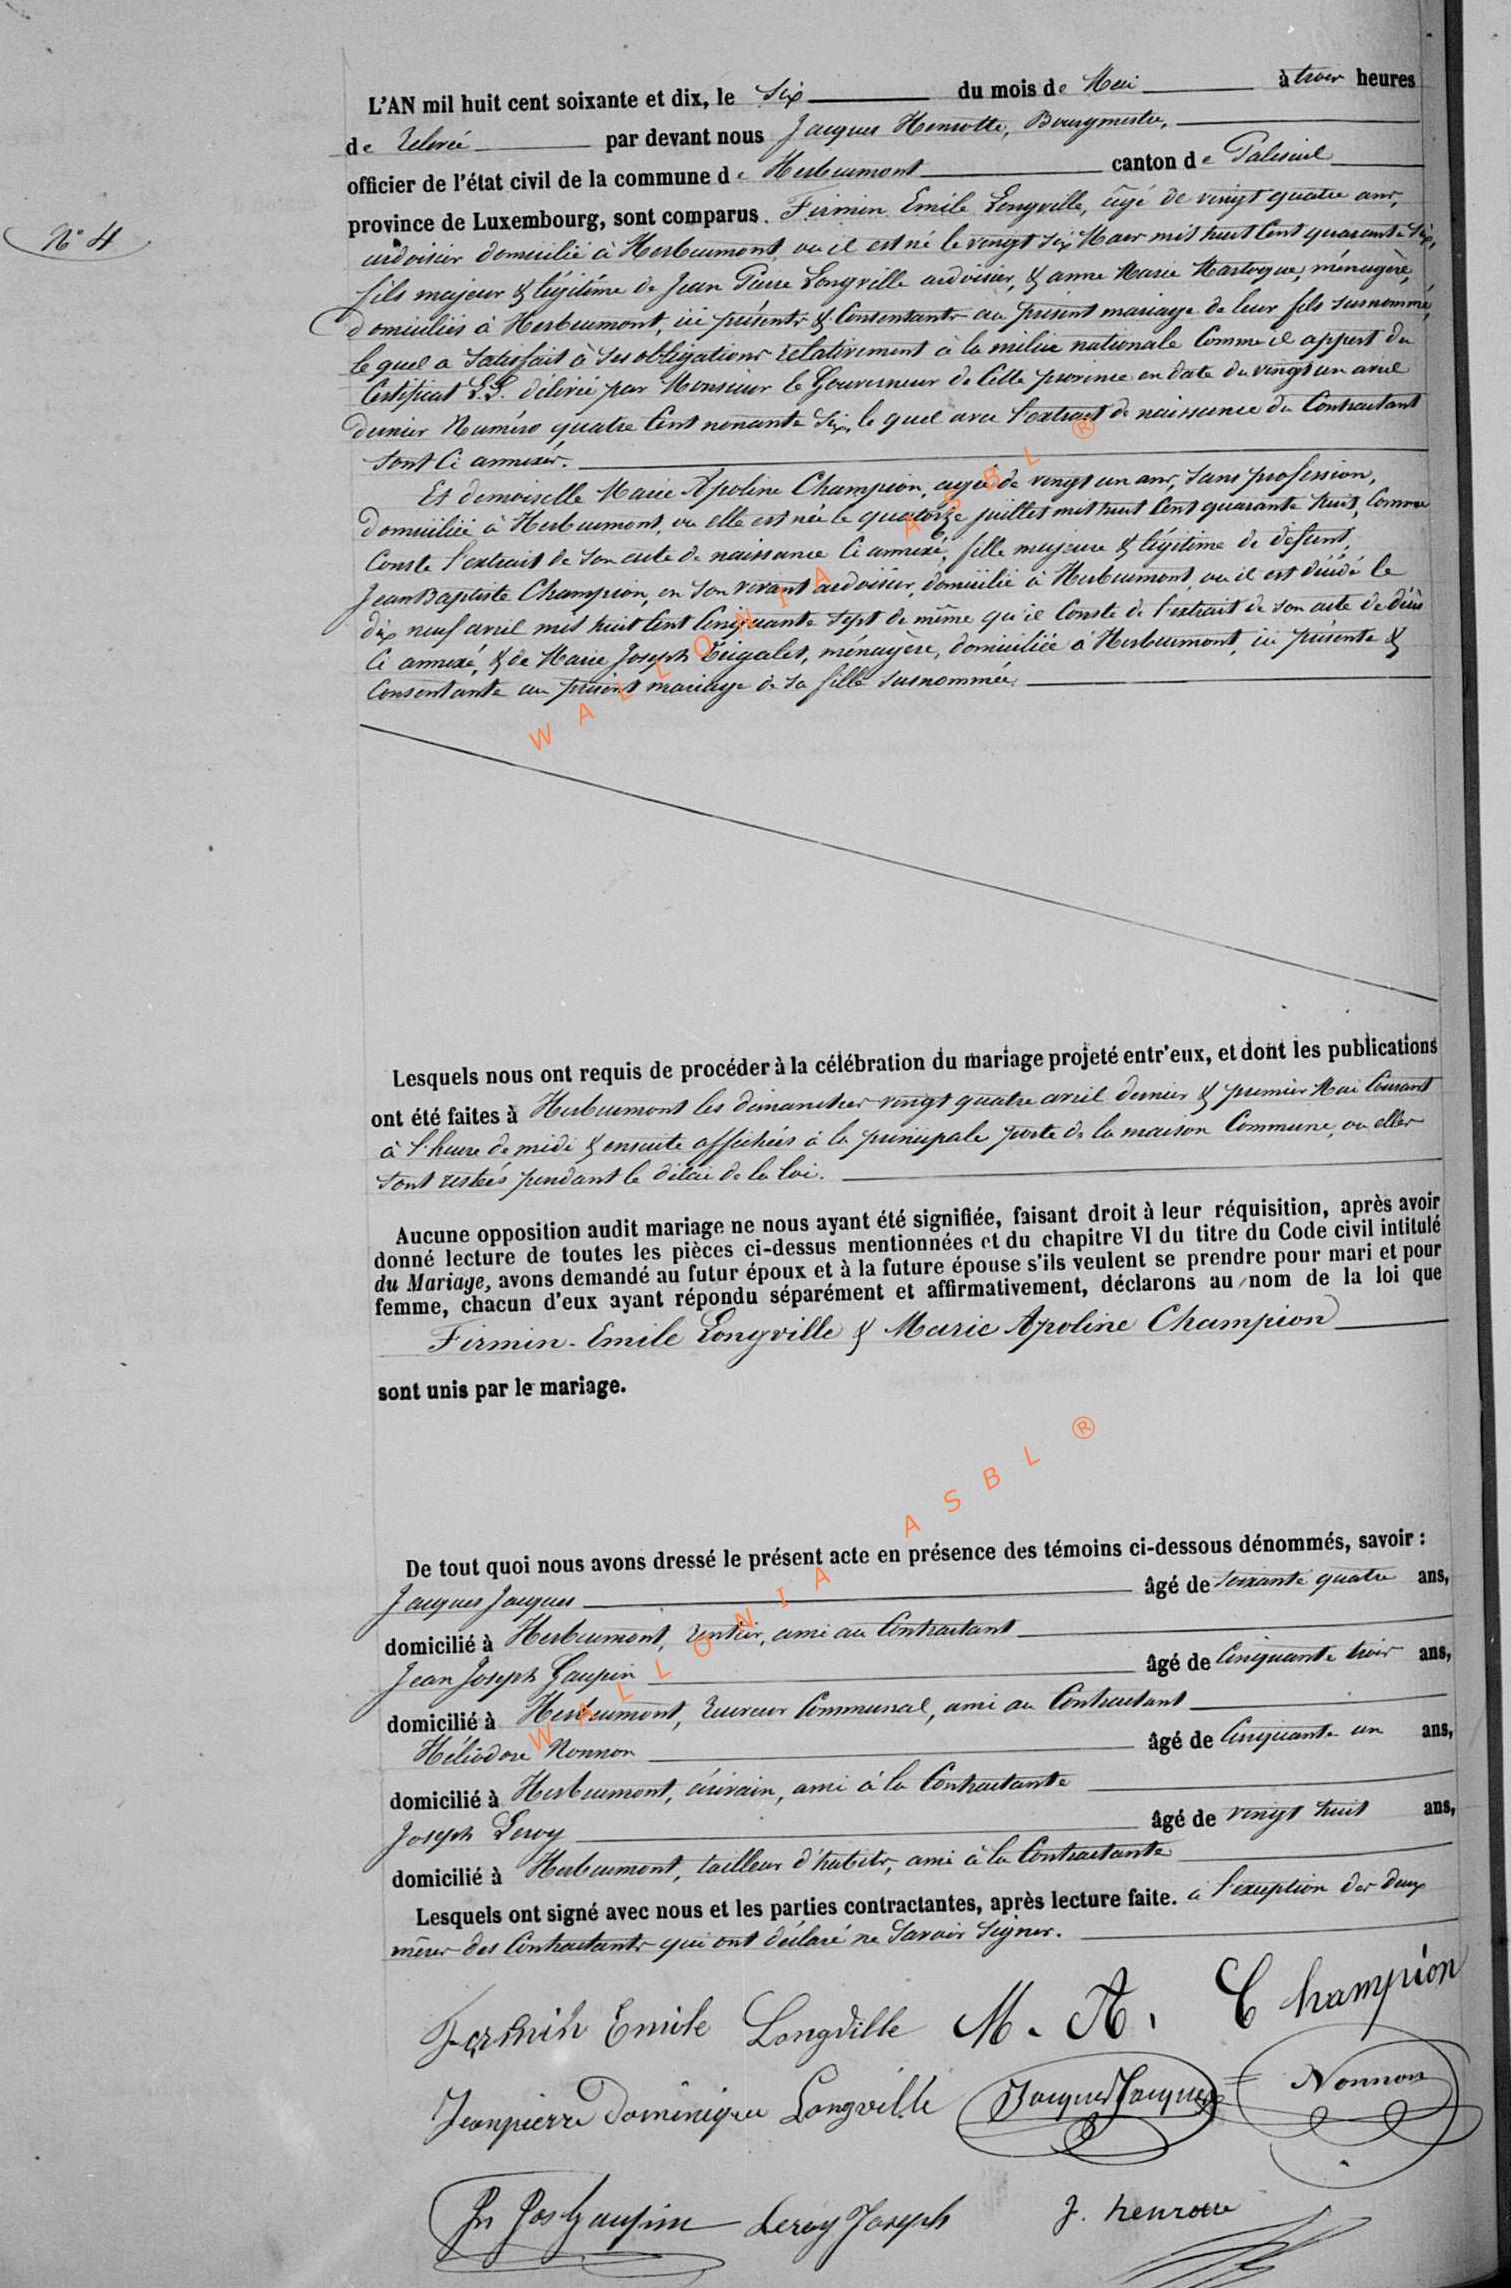 N° 4
L'AN mil huit cent soixante et dix, le six du mois de Mai à trois heures
de relevée par devant nous Jacques Henrotte, Bourgmestre,
officier de l'état civil de la commune de Herbeumont canton de Paliseul
province de Luxembourg, sont comparus. Firmin Emile Longville, âgé de vingt quatre ans,
ardoisier domicilié à Herbeumont, où il est né le vingt six Mars mil huit cent quarante six,
fils majeur & légitime de Jean Pierre Longville ardoisier, & anne Marie ménagère,
domiciliés à Herbeumont, ici présents & Consentants au présent mariage de leur fils susnommé,
lequel a satisfait à ses obligations relativement à la milice nationale Comme il appert du
Certificat délivré par Monsieur le Gouverneur de Cette province en date du vingt un avril
dernier Numéro quatre Cent nonante six, le quel avec l'extrait de naissance du Contractant
sont Ci annexés.
Et demoiselle Marie Apoline Champion, agée de vingt un ans, sans profession,
domiciliée à Herbeumont, où elle est née le quatorze juillet mil huit Cent quarante huit, Comme
Conste l'extrait de son acte de naissance Ci annexé, fille majeure & légitime de défunt,
Jean Baptiste Champion, en son vivant ardoisier, domicilié à Herbeumont, où il est décédé le
dix neuf avril mil huit Cent Cinquante sept de même qu'il Conste de l'extrait de son acte de décès
Ci annexé, & de Marie Joseph Trigalet, ménagère, domiciliée à Herbeumont, ici présente &
Consentante au présent mariage de sa fille susnommée.
Lesquels nous ont requis de procéder à la célébration du mariage projeté entr'eux, et dont les publications
ont été faites à Herbeumont les dimanches vingt quatre avril dernier & premier Mai Courant
à l'heure de midi & ensuite affichées à la principale porte de la maison Commune, où elles
sont restées pendant le délai de la loi.
Aucune opposition audit mariage ne nous ayant été signifiée, faisant droit à leur réquisition, après avoir
donné lecture de toutes les pièces ci-dessus mentionnées et du chapitre VI du titre du Code civil intitulé
du Mariage, avons demandé au futur époux et à la future épouse s'ils veulent se prendre pour mari et pour
femme, chacun d'eux ayant répondu séparément et affirmativement, déclarons au nom de la loi que
Firmin-Emile Longville & Marie Apoline Champion
sont unis par le mariage.
De tout quoi nous avons dressé le présent acte en présence des témoins ci-dessous dénommés, savoir :
Jacques Jacques âgé de soixante quatre ans,
domicilié à Herbeumont, rentier, ami au Contractant
Jean Joseph Gaupin âgé de Cinquante trois ans,
domicilié à Herbeumont, receveur Communal, ami au Contractant
Héliodore Nonnon âgé de Cinquante un ans,
domicilié à Herbeumont, écrivain, ami à la Contractante
Joseph Leroy âgé de vingt huit ans,
domicilié à Herbeumont, tailleur d'habits, ami à la Contractante
Lesquels ont signé avec nous et les parties contractantes, après lecture faite. à l'exception des deux
mères des Contractants qui ont déclaré ne savoir signer.
Fermin Emile Longville M. A. Champion
Jeanpierre Dominique Longville Jacques Jacques Nonnon
Jn Jos Gaupin Leroy Joseph J. henrotte
WALLONIA ASBL ®
WALLONIA ASBL ®